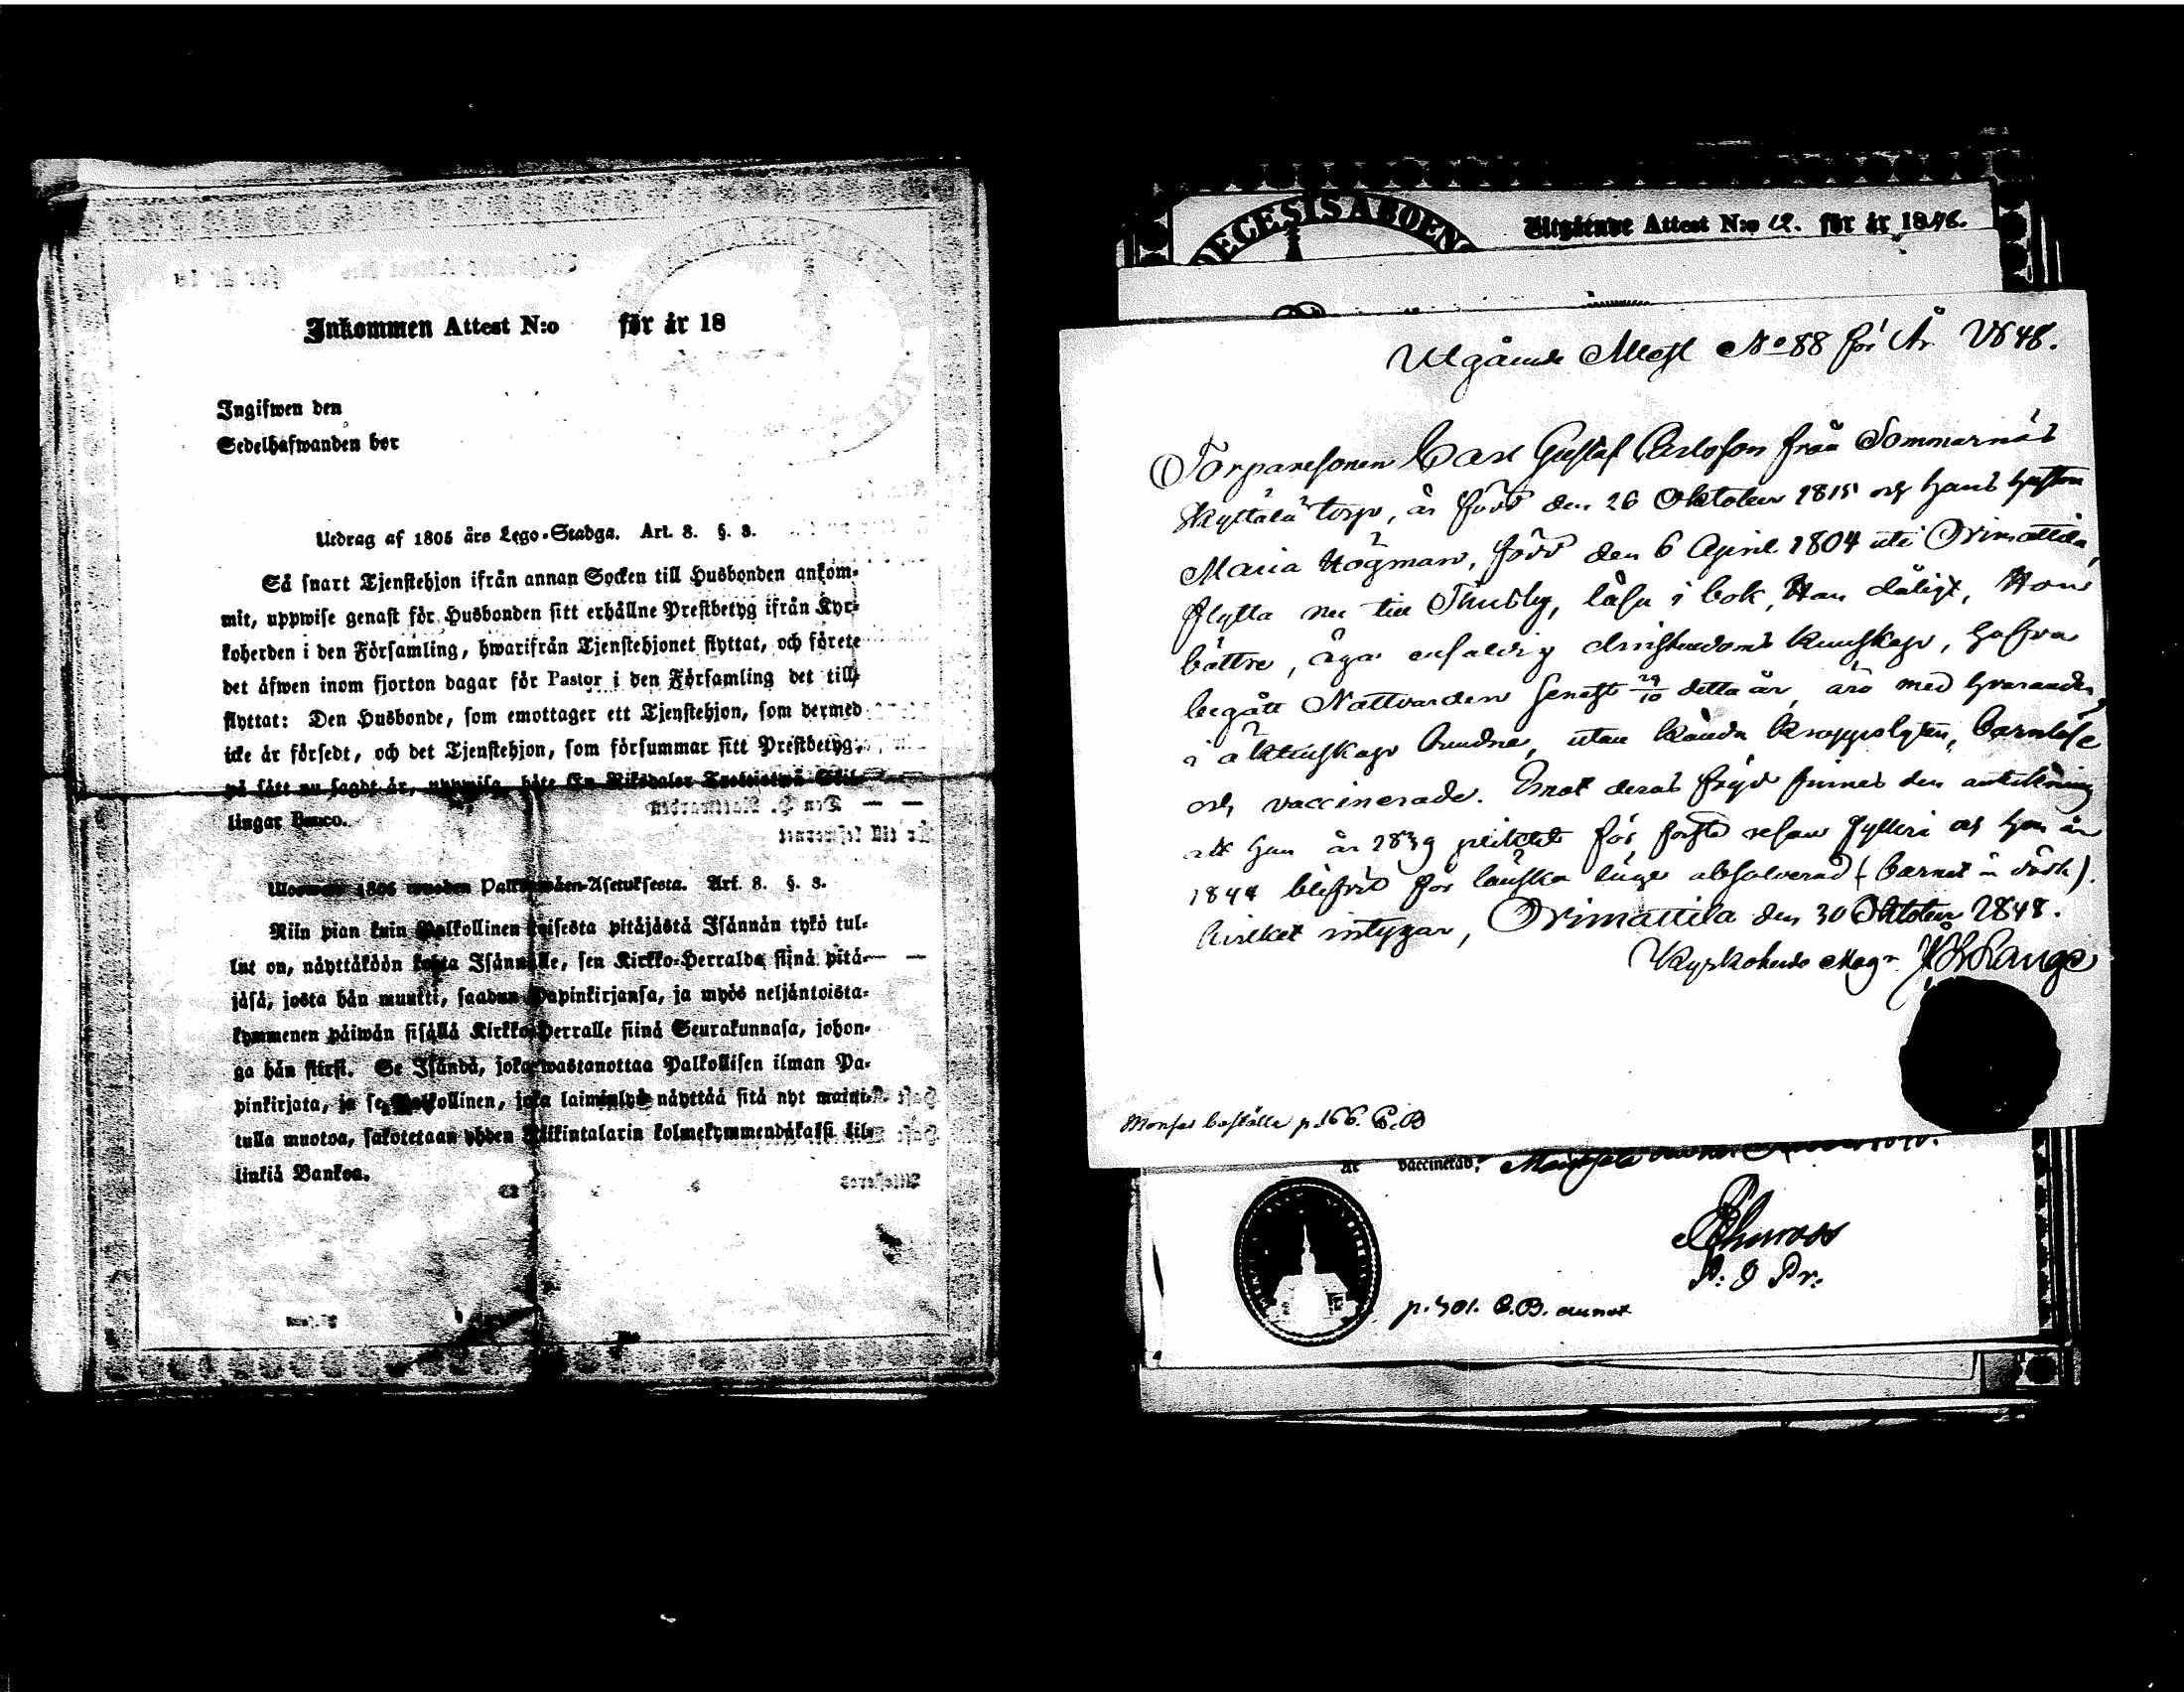 Inkommen Attest N:o för år 18
Ingifwen den
Sedelhafwanden bor
Utdrag af 1805 års Lego-Stadga. Art. 8. §. 3.
Så snart Tjenstehjon ifrån annan Socken till Husbonden ankom-
mit, uppwise genast för Husbonden sitt erhållne Prestbetyg ifrån Kyr-
koherden i den Församling, hwarifrån Tjenstehjonet flyttat, och förete
det äfwen inom fjorton dagar för Pastor i den Församling det till-
flyttat: Den Husbonde, som emottager ett Tjenstehjon, som dermed
icke är försedt, och det Tjenstehjon, som försummar sitt Prestbetyg,
på sätt nu sagdt är, uppwisa, böte En Riksdaler Trettiotwå Skil-
lingar Banco.
Wuoneen 1805 wuoden Palkkawäen-Asetuksesta. Art. 8. §. 3.
Niin pian kuin Palkollinen toisesta pitäjästä Isännän tykö tul-
lut on, näyttäköön kohta Isännälle, sen Kirkko-Herralda siinä pitä-
jäsä, josta hän muutti, saadun Papinkirjansa, ja myös neljäntoista-
kymmenen päiwän sisällä Kirkko-Herralle siinä Seurakunnasa, johon-
ga hän siirsi. Se Isändä, joka wastanottaa Palkollisen ilman Pa-
pinkirjata, ja se Palkollinen, joka laiminlyö näyttää sitä nyt maini-
tulla muotoa, sakotetaan yhden Riikintalarin kolmekymmendäkaksi kil-
linkiä Bankoa.
DIECESIS ABOEN
Utgående Attest N:o 12. för år 1848.
Utgående Attest No 88 för År 1848.
Torparesonen Carl Gustaf Carlsson från Sommarnäs
Skyttälä torp, är född den 26 Oktober 1815 och hans hustru
Maria Högman, född den 6 April 1804 uti Orimattila,
flytta nu till Thusby, läsa i bok, Han dåligt, Hon
bättre, äga enfaldig christendoms kunskap, hafva
begått Nattvarden senast 29/10 detta år, äro med hvarandra
i äktenskap bundne, utan kända kroppslyten, barnlöse
och vaccinerade. Emot deras frejd finnes den anteckning
att han år 1839 pliktat för första resan fylleri och hon år
1844 blifvit för lönska läge absolverad (barnet är dödt).
hvilket intygar, Orimattila den 30 Oktober 1848.
Kyrkoherde Mag:r Lange
p. 166. C.B
vaccinerad,
P: J Pr:
p. 401. C.B. annot